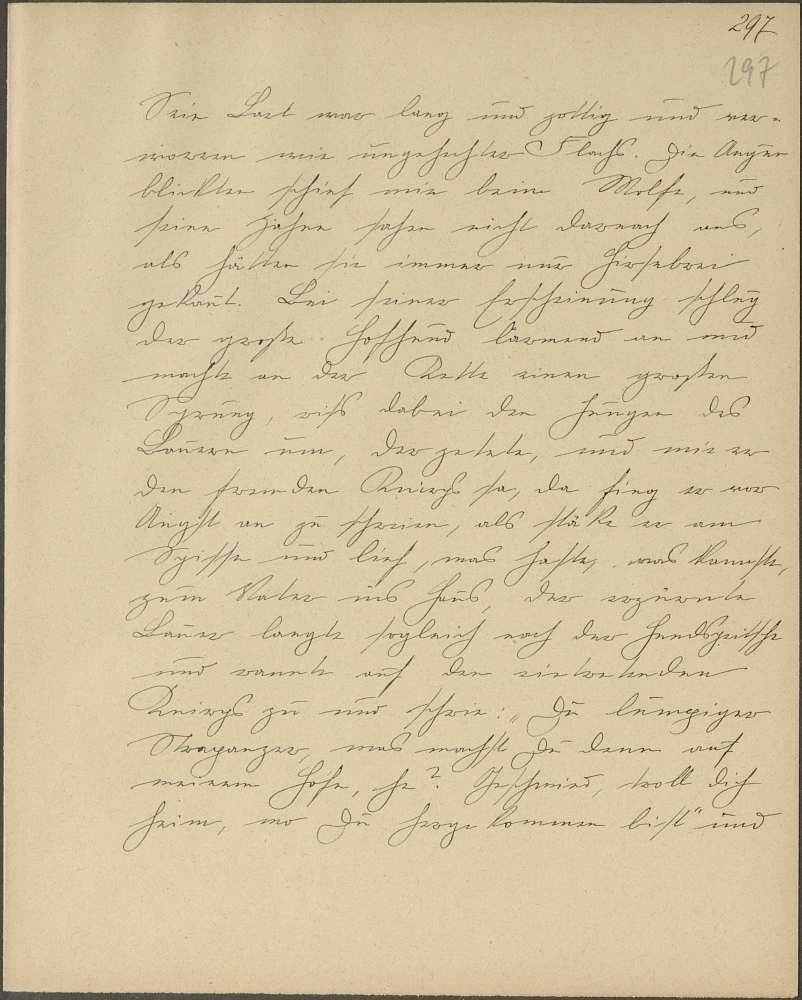 297
297
Sein Bart war lang und zottig und ver-
worren wie ungehechelter Flachs. Die Augen
blickten schief wie beim Wolfe, und
seine Zähne sahen nicht darnach aus,
als hätten sie immer nur Hirsebrei
gekaut. Bei seiner Erscheinung schlug
der große Hofhund lärmend an und
machte an der Kette einen großen
Sprung, riß dabei den Jungen des
Bauern um, der
und wie er
den fremden Knirps sa, da fing er vor
Angst an zu schreien, als stäke er am
Spisse und lief, was haste, was kannste,
zum Vater ins Haus, der erzürnte
Bauer langte sogleich nach der Hundspeitsche
und rannte auf den eintretenden
Knirps zu und schrie: „Du lumpiger
Strapanzer, was machst Du denn auf
meinem Hofe, he? Geschwind, troll dich
heim, wo Du hergekommen bist" und